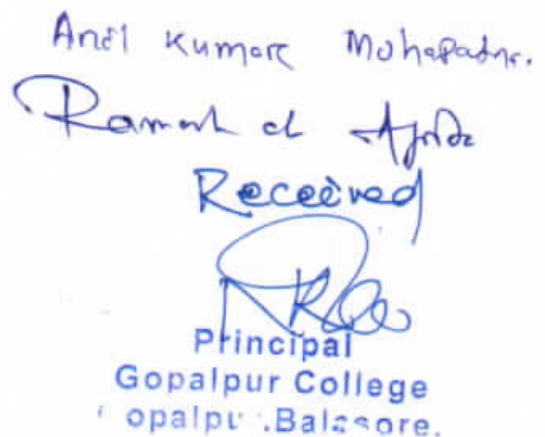 Anil Kumar Mohapatra.
Ramesh ch
Received
Principal
Gopalpur College
Gopalpur.Balasore.